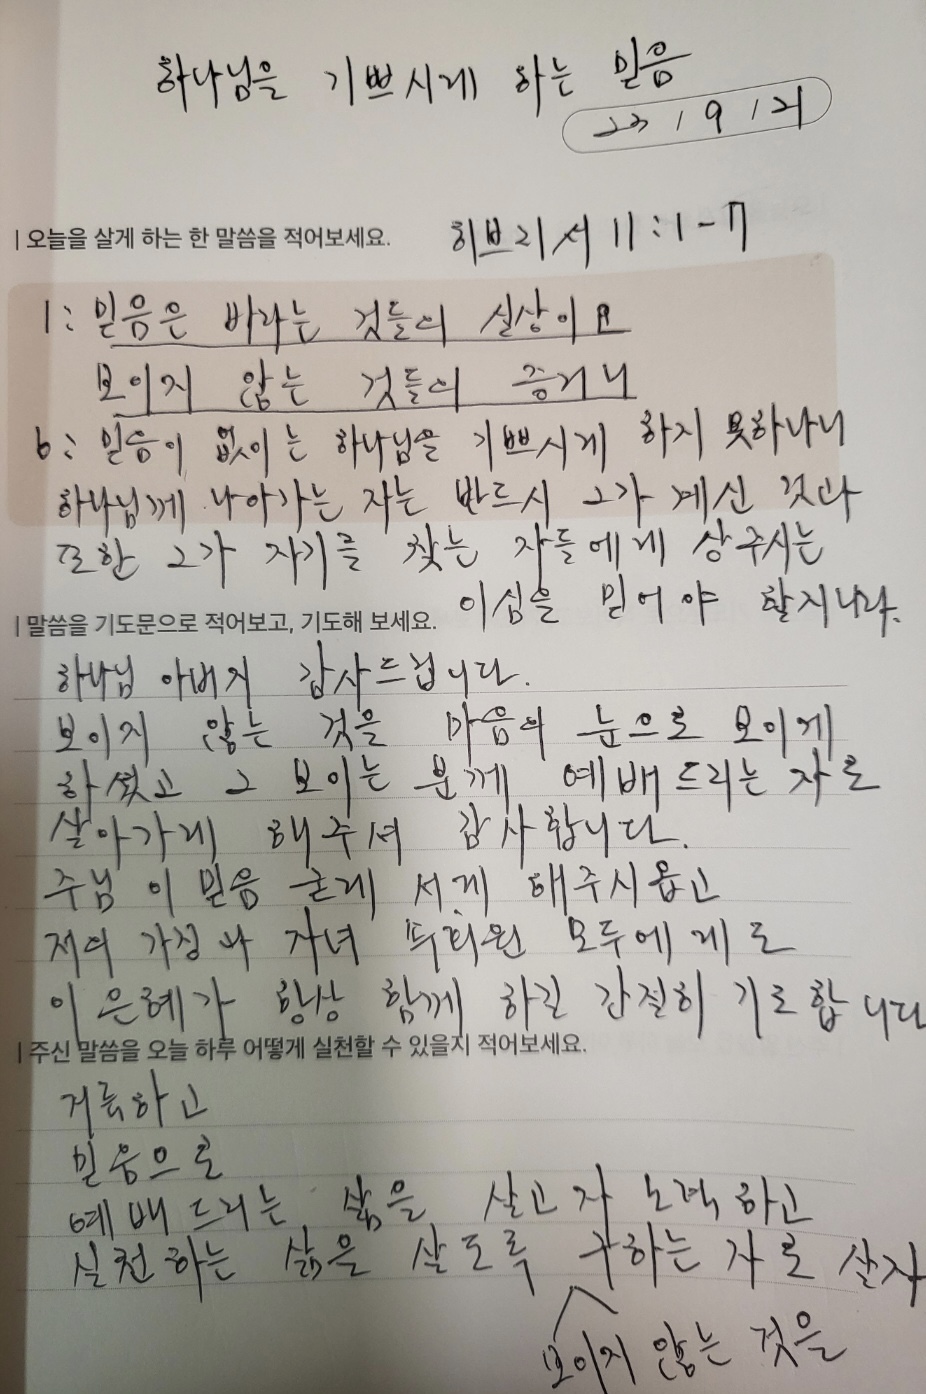 하나님을 기쁘시게 하는 믿음
23 / 9 / 21
| 오늘을 살게 하는 한 말씀을 적어보세요. 히브리서 11:1-7
1: 믿음은 바라는 것들의 실상이요
보이지 않는 것들의 증거니
6: 믿음이 없이는 하나님을 기쁘시게 하지 못하나니
하나님께 나아가는 자는 반드시 그가 계신 것과
또한 그가 자기를 찾는 자들에게 상주시는
이심을 믿어야 할지니라.
| 말씀을 기도문으로 적어보고, 기도해 보세요.
하나님 아버지 감사드립니다.
보이지 않는 것을 마음의 눈으로 보이게
하셨고 그 보이는 분께 예배드리는 자로
살아가게 해주셔 감사합니다.
주님 이 믿음 굳게 서게 해주시옵고
저의 가정과 자녀 모두에게도
이 은혜가 항상 함께 하길 간절히 기도합니다
| 주신 말씀을 오늘 하루 어떻게 실천할 수 있을지 적어보세요.
거룩하고
믿음으로
예배드리는 삶을 살고자 노력하고
실천하는 삶을 살도록 구하는 자로 살자
보이지 않는 것을